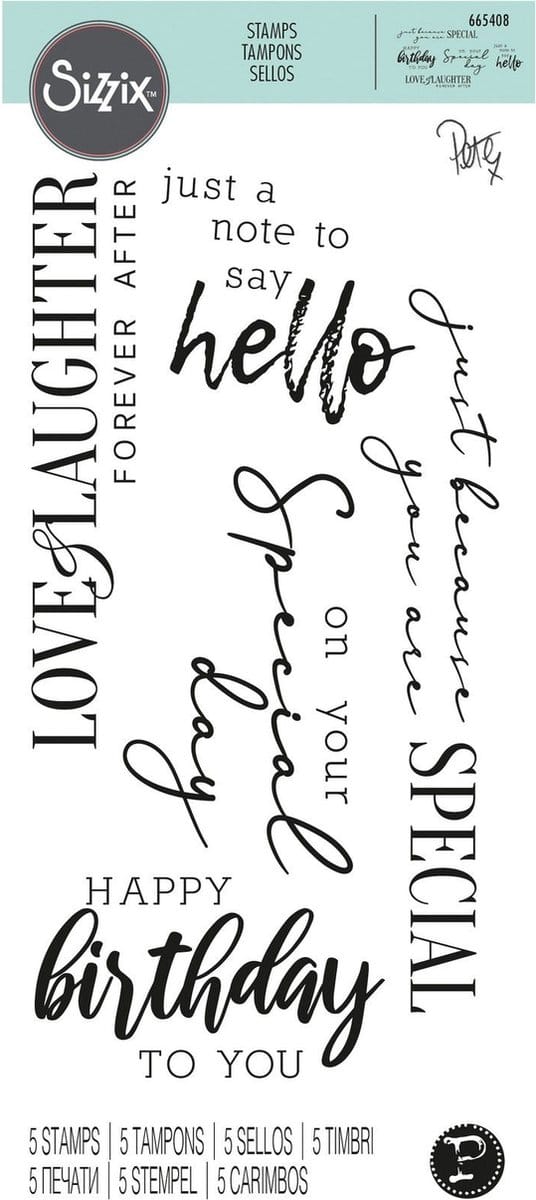 Sizzix™
STAMPS
TAMPONS
SELLOS
665408
just because
you are SPECIAL
HAPPY
birthday
TO YOU
on your
Special
day
just a
note to
say
hello
LOVE & LAUGHTER
FOREVER AFTER
Pete
LOVE & LAUGHTER
FOREVER AFTER
just a
note to
say
hello
just because
you are
SPECIAL
on your
Special
day
HAPPY
birthday
TO YOU
5 STAMPS | 5 TAMPONS | 5 SELLOS | 5 TIMBRI
5 ПЕЧАТИ | 5 STEMPEL | 5 CARIMBOS